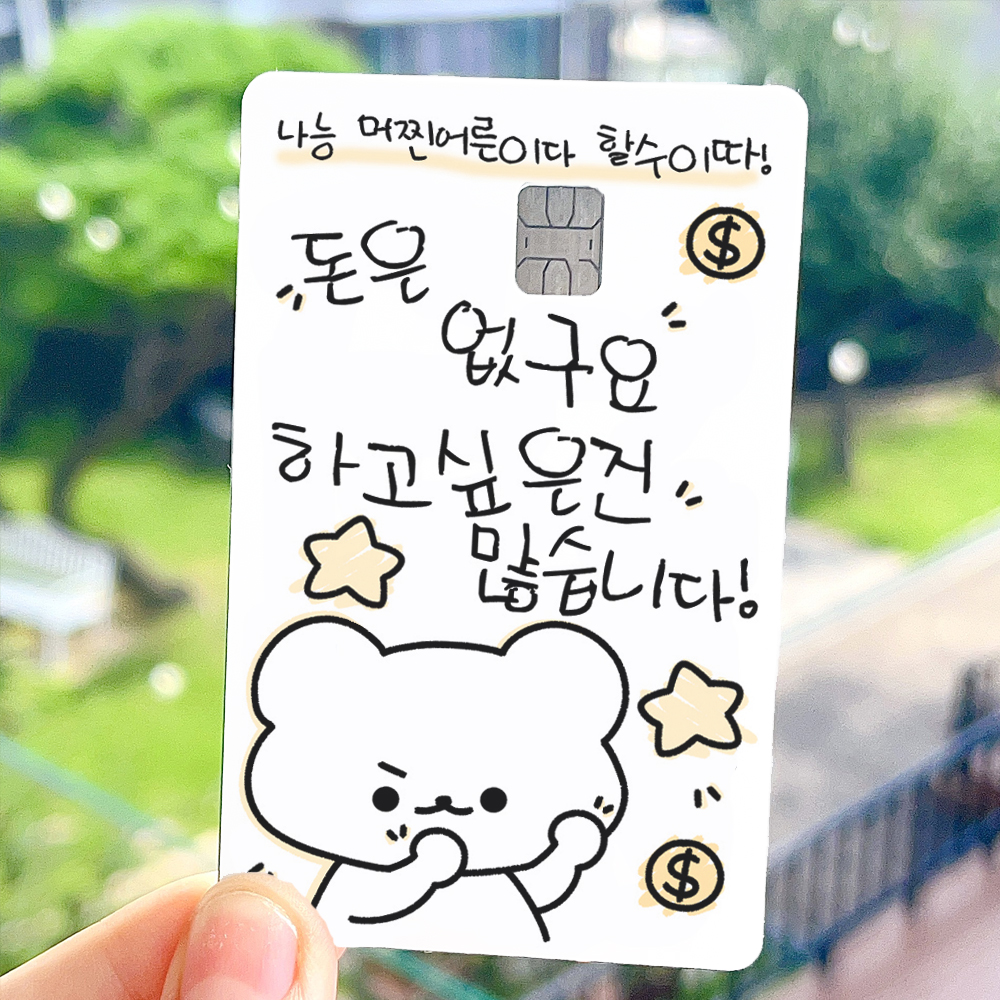 나능 머찐어른이다 할수이따!
돈은
없구요
하고싶은건
많습니다!
$
$